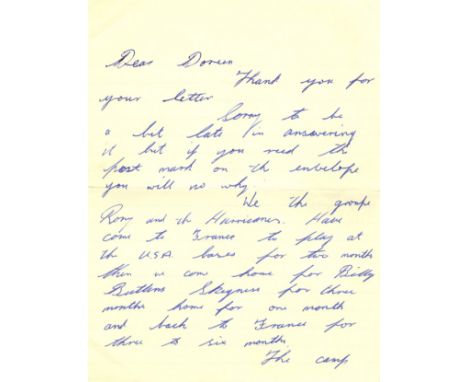 Dear Doreen
Thank you for
your letter
Sorry to be
a bit late in answering
it but if you reed the
post mark on the envelope
you will no why.
We the groupe
Rory and the Hurricanes. Have
come to France to play at
the U.S.A. bases for two month
then we come home for Billy
Butlins Skegness for three
months home for one month
and back to France for
three to six months.
The camp